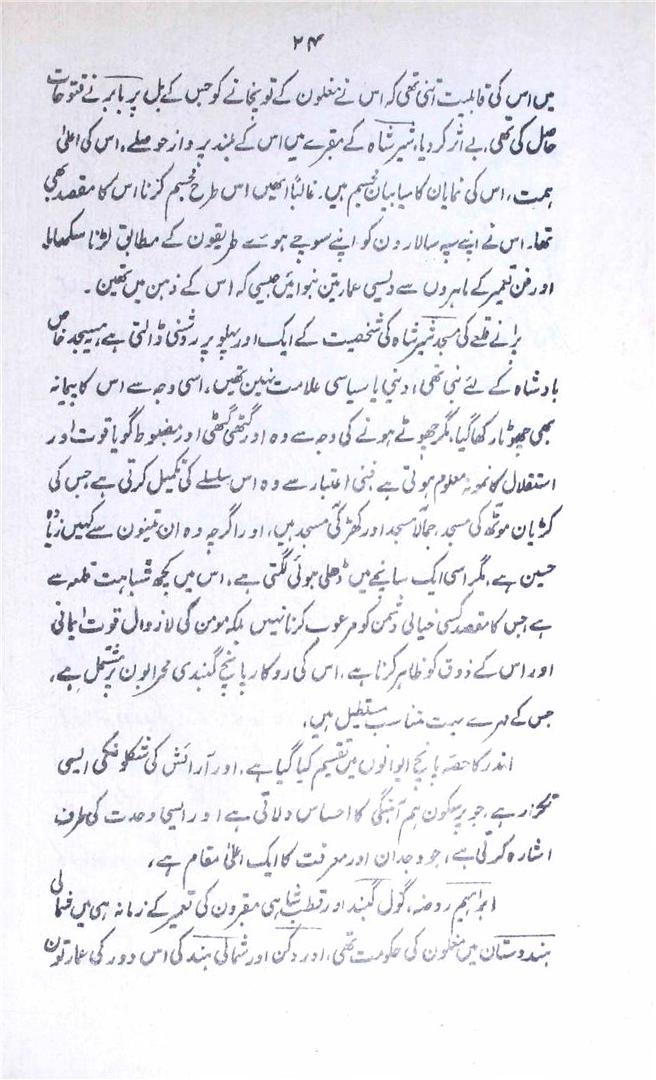 ۲۴
میں اس کی قابلیت اتنی تھی کہ اس نے مغلون کے توپخانے کو جس کے بل پر بابر نے فتوحات
حاصل کی تھی، بے اثر کر دیا، شیر شاہ کے مقبرے میں اس کے بلند پرواز حوصلے، اس کی اعلیٰ
ہمت، اس کی نمایان کامیابیان مجسم ہیں۔ غالباً انھیں اس طرح مجسم کرنا اس کا مقصد بھی
تھا۔ اس نے اپنے سپہ سالارون کو اپنے سوچے ہوئے طریقون کے مطابق لڑنا سکھایا
اور فن تعمیر کے ماہروں سے ویسی عمارتین بنوائیں جیسی کہ اس کے ذہن میں تھین۔
پرانے قلعے کی مسجد شیر شاہ کی شخصیت کے ایک اور پہلو پر روشنی ڈالتی ہے، یہ مسجد خاص
بادشاہ کے لئے بنی تھی، دینی یا سیاسی علامت نہین تھیں، اسی وجہ سے اس کا پیمانہ
بھی چھوٹا رکھا گیا، مگر چھوٹے ہونے کی وجہ سے وہ اور گٹھی گٹھی اور مضبوط گویا قوت اور
استقلال کا نمونہ معلوم ہوتی ہے فنی اعتبار سے وہ اس سلسلے کی تکمیل کرتی ہے جس کی
کڑیان موٹھ کی مسجد، جمالا مسجد اور کھڑکی مسجد ہیں، اور اگرچہ وہ ان تینون سے کہیں زیادہ
حسین ہے، مگر اسی ایک سانچے میں ڈھلی ہوئی لگتی ہے، اس میں کچھ شباہت قلعہ سے
ہے جس کا مقصد کسی خیالی دشمن کو مرعوب کرنا نہیں بلکہ مومن کی لازوال قوت ایمانی
اور اس کے ذوق کو ظاہر کرنا ہے، اس کی روکار پانچ گنبدی محرابون پر مشتمل ہے،
جس کے دہرے بہت متناسب مستطیل ہیں،
اندر کا حصہ پانچ ایوانوں میں تقسیم کیا گیا ہے، اور آرائش کی شکلونکی ایسی
تکرار ہے، جو پرسکون ہم آہنگی کا احساس دلاتی ہے اور ایسی وحدت کی طرف
اشارہ کرتی ہے، جو وجدان اور معرفت کا ایک اعلیٰ مقام ہے،
ابراہیم روضہ، گول گنبد اور قطب شاہی مقبرون کی تعمیر کے زمانہ ہی میں شمالی
ہندوستان میں مغلون کی حکومت تھی، اور دکن اور شمالی ہند کی اس دور کی عمارتون